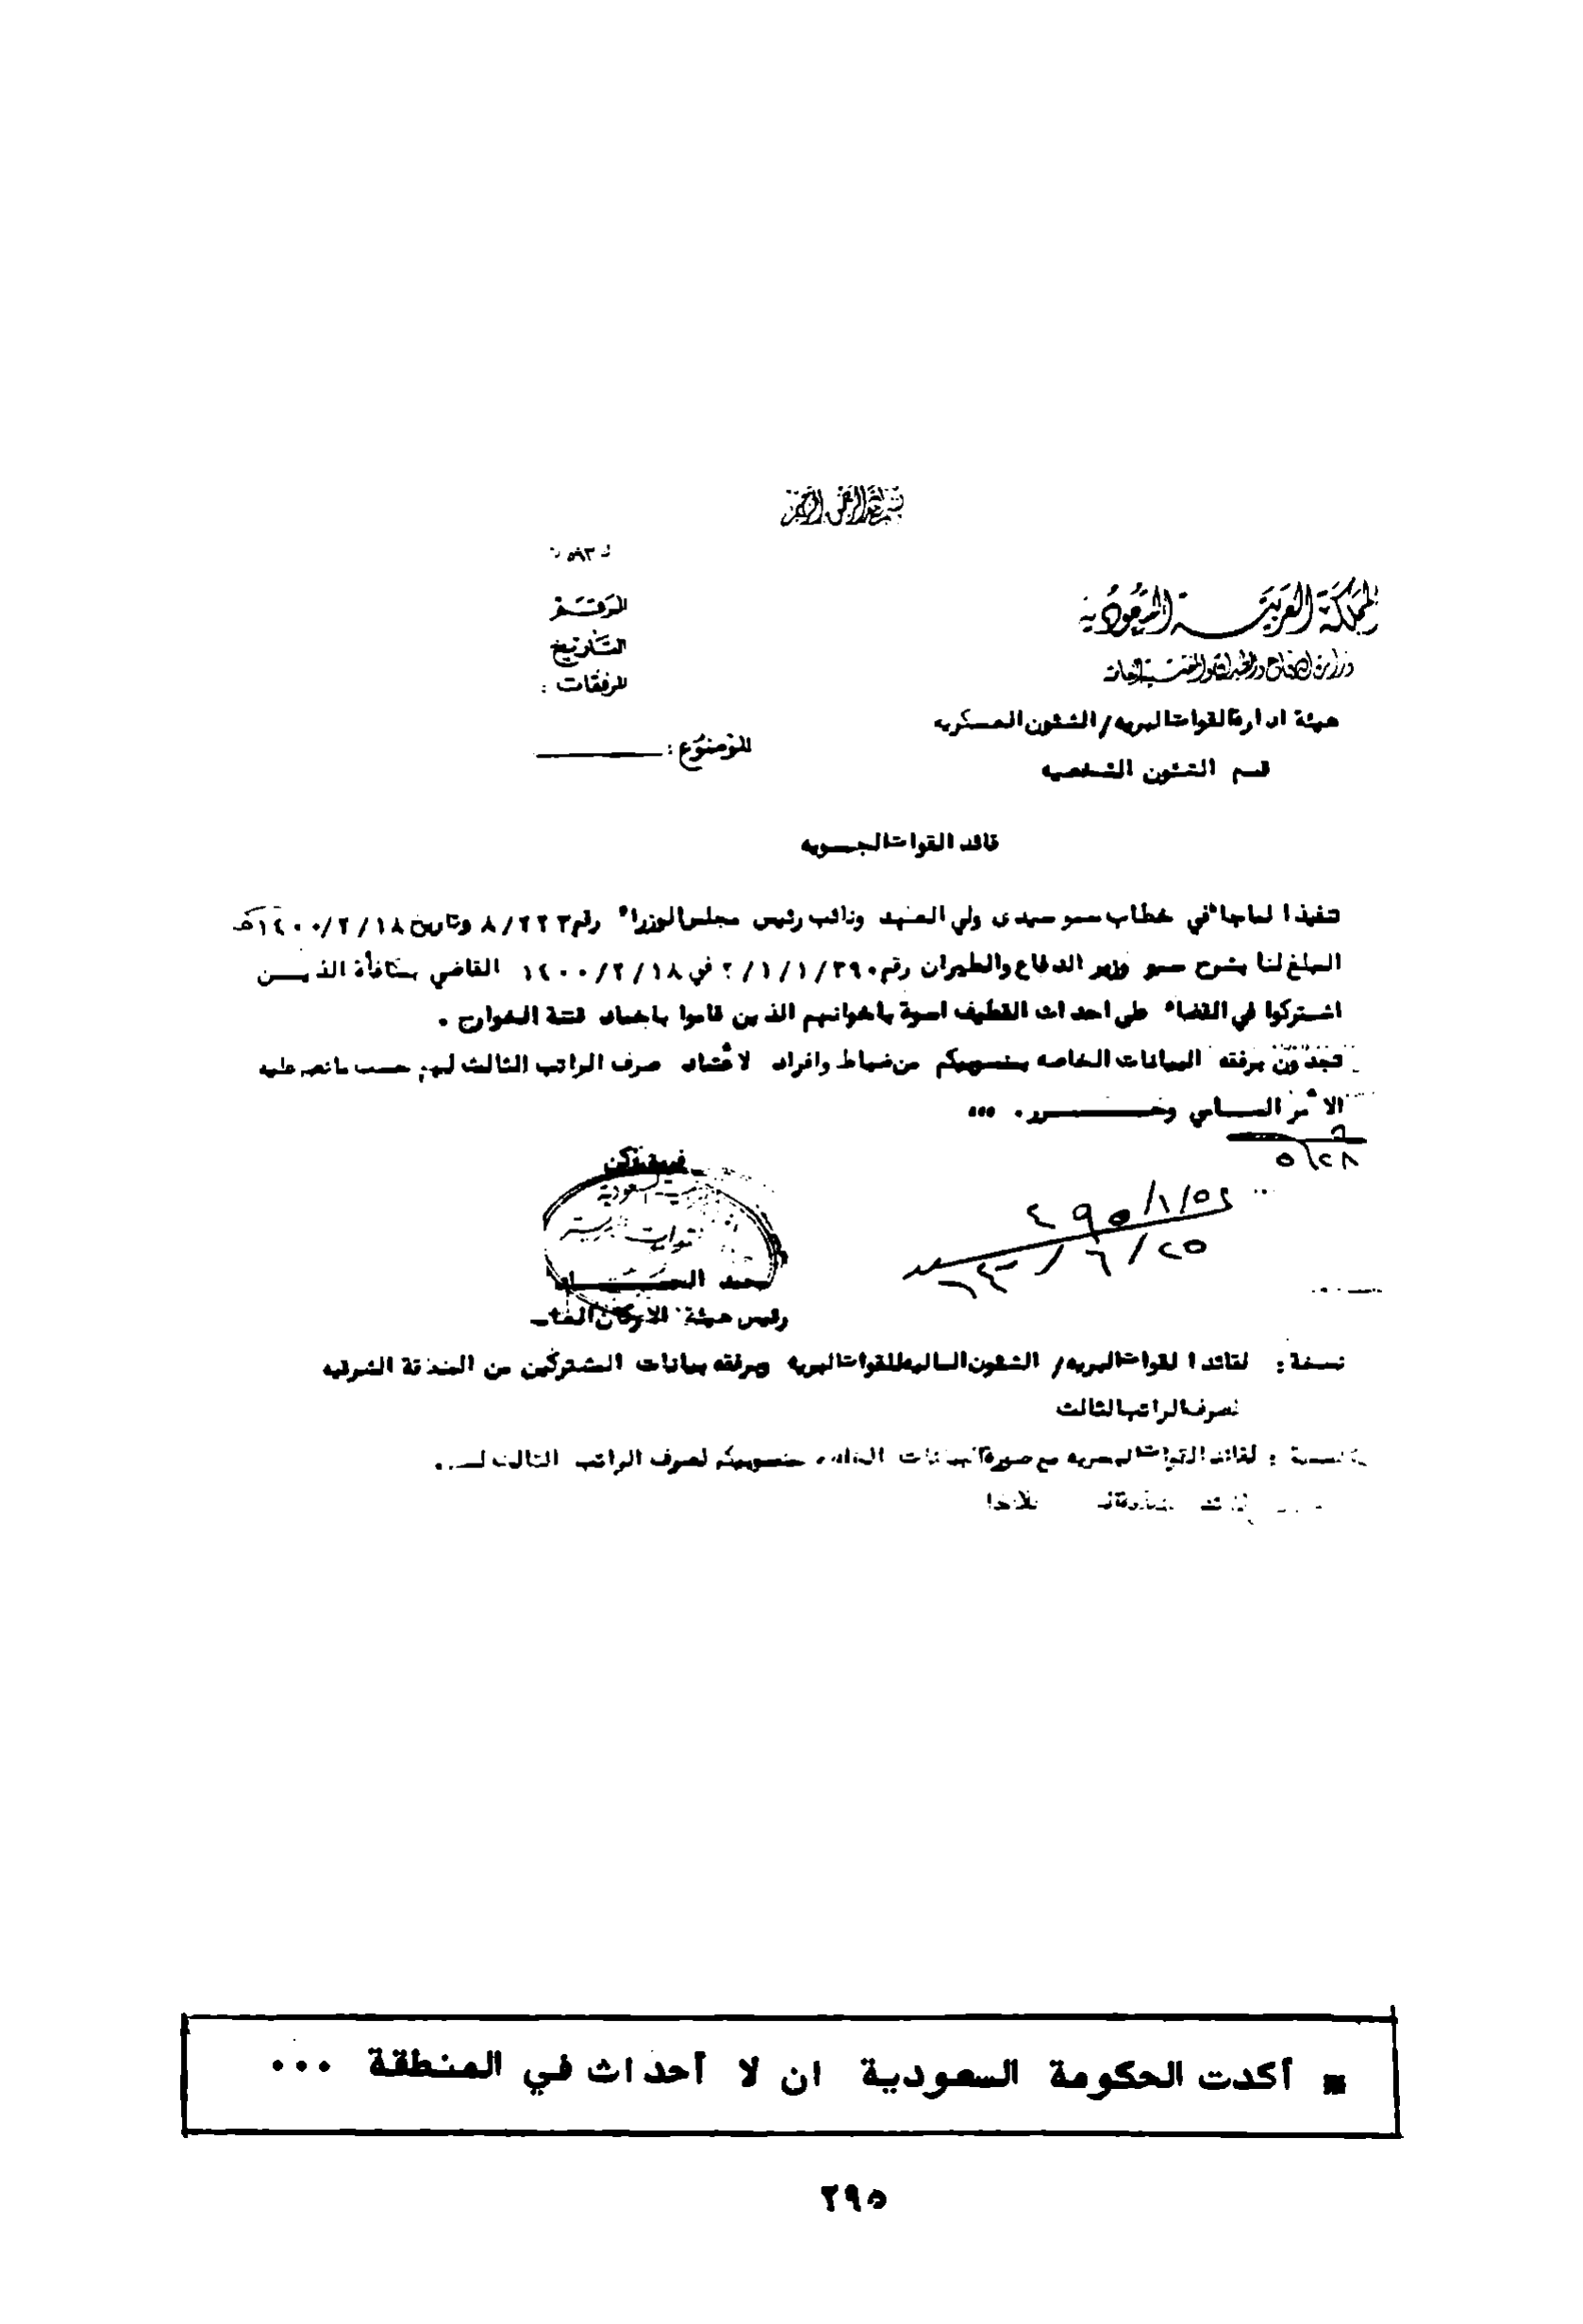 بسم الله الرحمن الرحيم
المملكة العربية السعودية
وزارة الدفاع والطيران والمفتشية العامة
هيئة ادارة القوات البريه/الشئون العسكريه
قسم الشئون الشخصيه
الرقم
التاريخ
المرفقات :
الموضوع :
قائد القوات الجويه
تنفيذا لماجاء في خطاب سمو سيدى ولي العهد ونائب رئيس مجلس الوزراء رقم ٨/٢٢٣ وتاريخ ١٤٠٠/٢/١٨هـ
المبلغ لنا بشرح سمو وزير الدفاع والطيران رقم ٢/١/١/٣٩٠ في ١٤٠٠/٢/١٨ القاضي بمكافأة الذين
اشتركوا في القضاء على احداث القطيف اسوة باخوانهم الذين قاموا باخماد فتنة الخوارج .
تجدون برفقه البيانات الخاصه بمنسوبيكم من ضباط وافراد لاعتماد صرف الراتب الثالث لهم حسب مانص عليه
الأمر السامي وحرر. ...
٥/٢٨
٢٥/٦
فريق ركن
السعودية
محمد
رئيس هيئة الاركان العامه
نسخة : لقائد القوات البريه/ الشئون الماليه للقوات البريه وبرفقه بيانات المشتركين من المنطقة الشرقيه
لصرف الراتب الثالث
نسخة : لقائد القوات البحريه مع صورة البيانات الخاصه بمنسوبيكم لصرف الراتب الثالث
■ أكدت الحكومة السعودية ان لا أحداث في المنطقة ...
٢٩٥